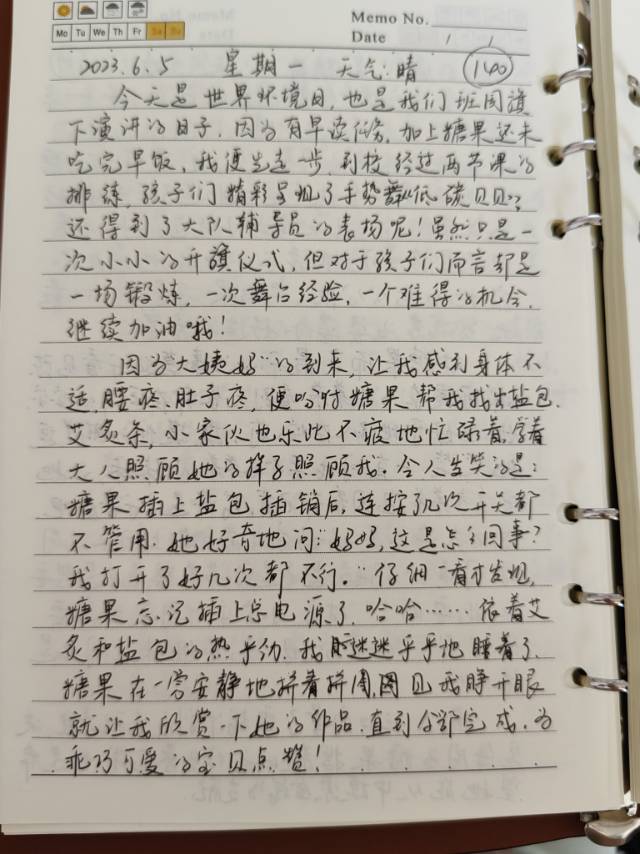 Memo No.
Mo Tu We Th Fr Sa Su
Date / /
2023.6.5 星期一 天气:晴 140
今天是世界环境日,也是我们班国旗
下演讲的日子,因为有早读任务,加上糖果还未
吃完早饭,我便先走一步,到校经过两节课的
排练,孩子们精彩呈现了手势舞《低碳贝贝》,
还得到了大队辅导员的表扬呢!虽然只是一
次小小的升旗仪式,但对于孩子们而言却是
一场锻炼,一次舞台经验,一个难得的机会,
继续加油哦!
因为"大姨妈"的到来,让我感到身体不
适,腰疼、肚子疼,便吩咐糖果帮我找出盐包、
艾灸条,小家伙也乐此不疲地忙碌着,学着
大人照顾她的样子照顾我。令人发笑的是:
糖果插上盐包插销后,连按了几次开关都
不管用.她好奇地问:"妈妈,这是怎么回事?
我打开了好几次都不行。"仔细一看才发现,
糖果忘记插上总电源了,哈哈……依着艾
灸和盐包的热乎劲,我迷迷乎乎地睡着了,
糖果在一旁安静地拼着拼图,图见我睁开眼
就让我欣赏一下她的作品,直到全部完成,为
乖巧可爱的宝贝点赞!